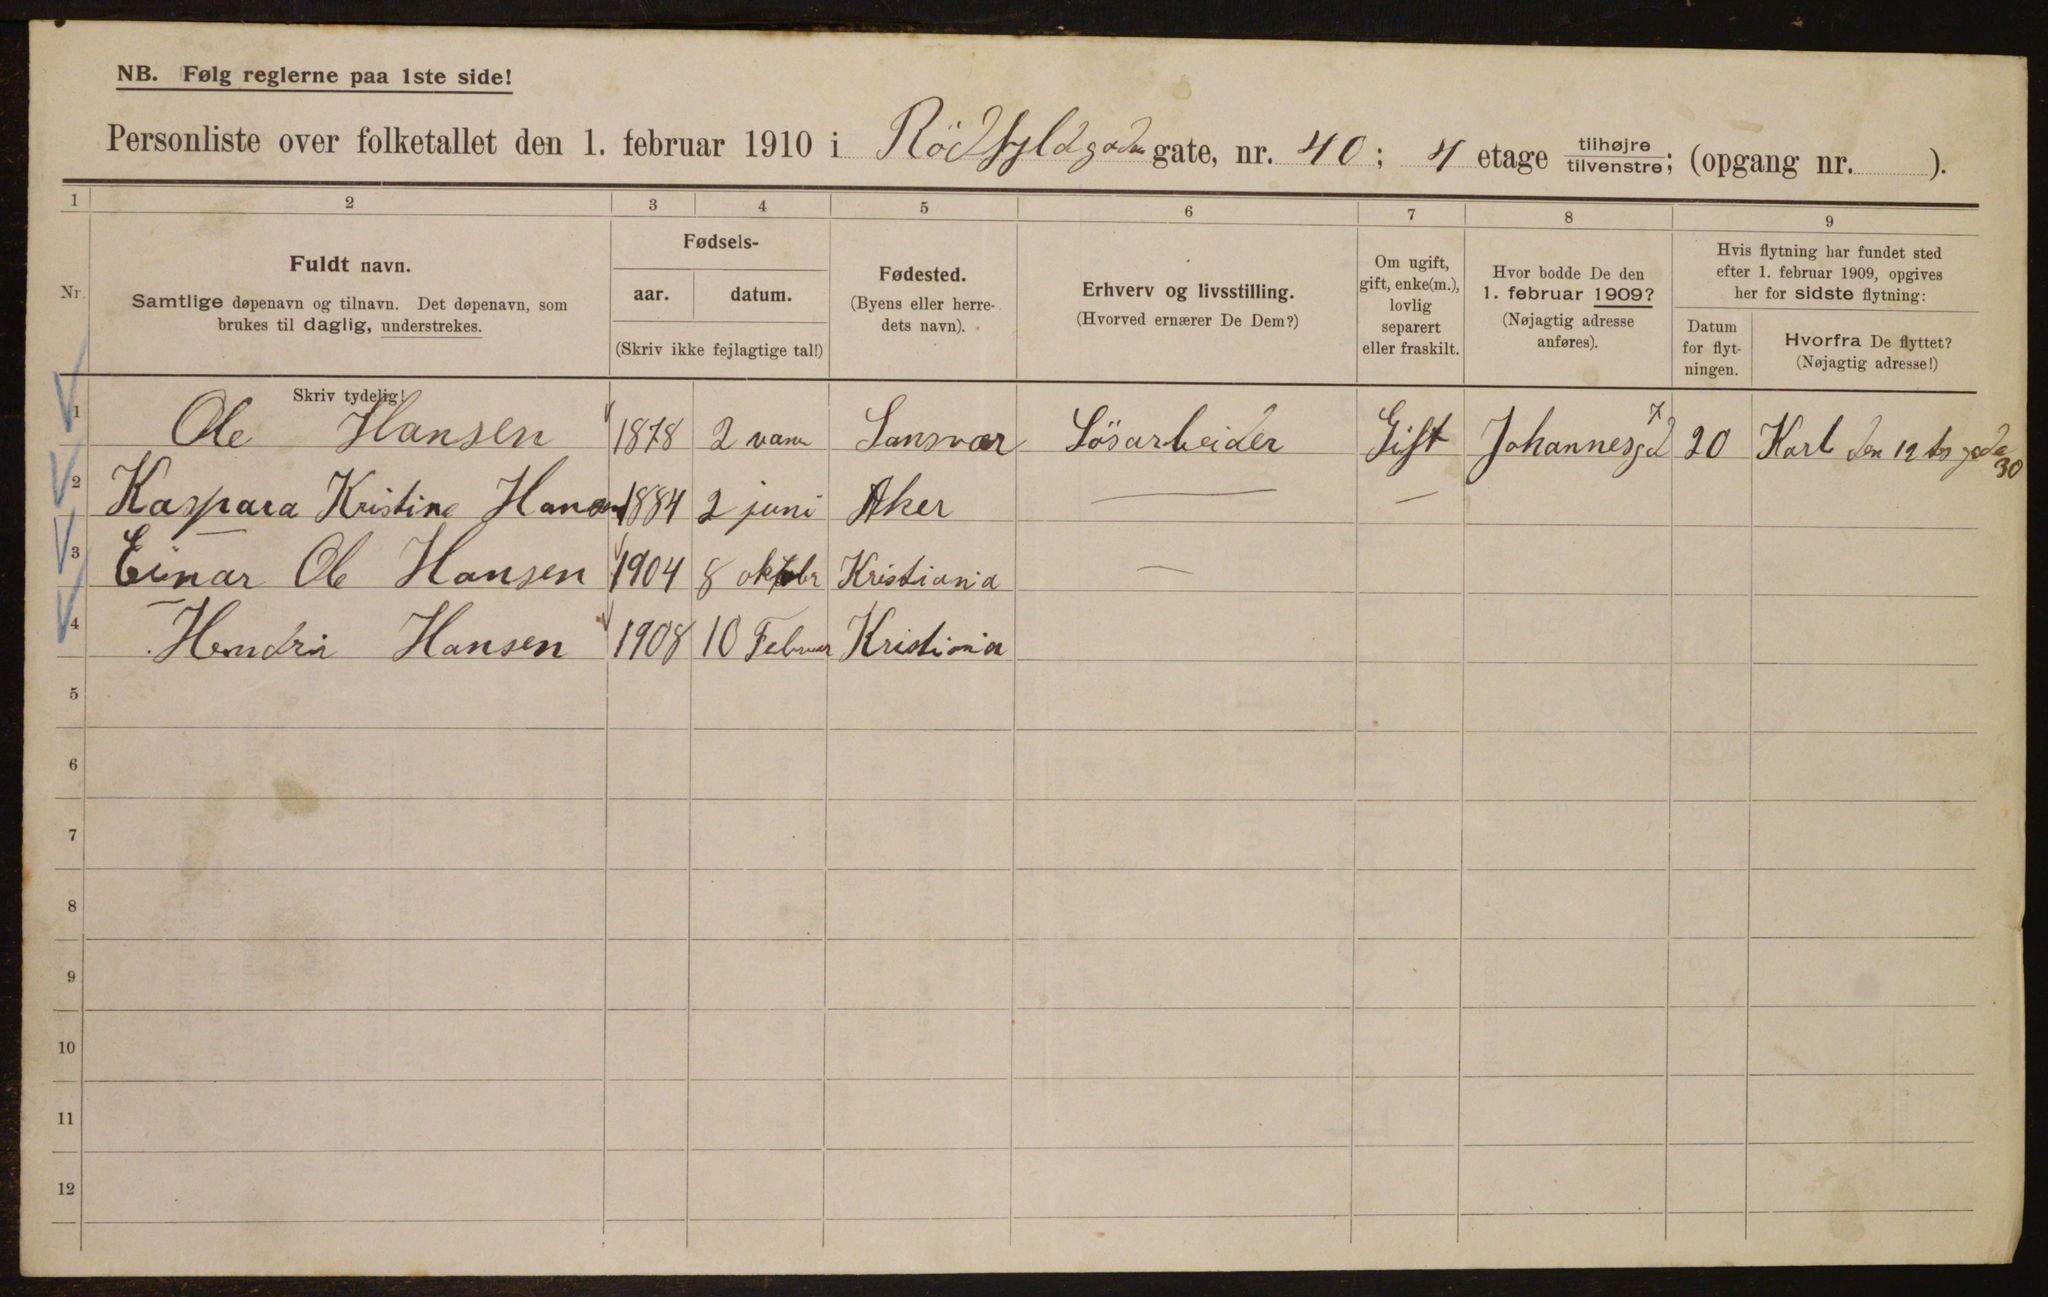 NB. Følg reglerne paa 1ste side!
Personliste over folketallet den 1. februar 1910 i Rödfyldgaden gate, nr. 40; 4 etage tilhøjre tilvenstre; (opgang nr. ).
1 2 3 4 5 6 7 8 9
Nr.
Fuldt navn.
Samtlige døpenavn og tilnavn. Det døpenavn, som
brukes til daglig, understrekes.
Fødsels-
aar. datum.
(Skriv ikke fejlagtige tal!)
Fødested.
(Byens eller herre-
dets navn).
Erhverv og livsstilling.
(Hvorved ernærer De Dem?)
Om ugift,
gift, enke(m.),
lovlig
separert
eller fraskilt.
Hvor bodde De den
1. februar 1909?
(Nøjagtig adresse
anføres).
Hvis flytning har fundet sted
efter 1. februar 1909, opgives
her for sidste flytning:
Datum
for flyt-
ningen.
Hvorfra De flyttet?
(Nøjagtig adresse!)
Skriv tydelig!
1 Ole Hansen 1878 2 Sansvær Lösarbeider Gift Johannesgd 7 20 Karl den 12 tes gade 30
2 Kaspara Kristine Hansen 1884 2 juni Aker —
3 Einar Ole Hansen 1904 8 oktobr Kristiania —
4 Hendri Hansen 1908 10 Februar Kristiania
5
6
7
8
9
10
11
12